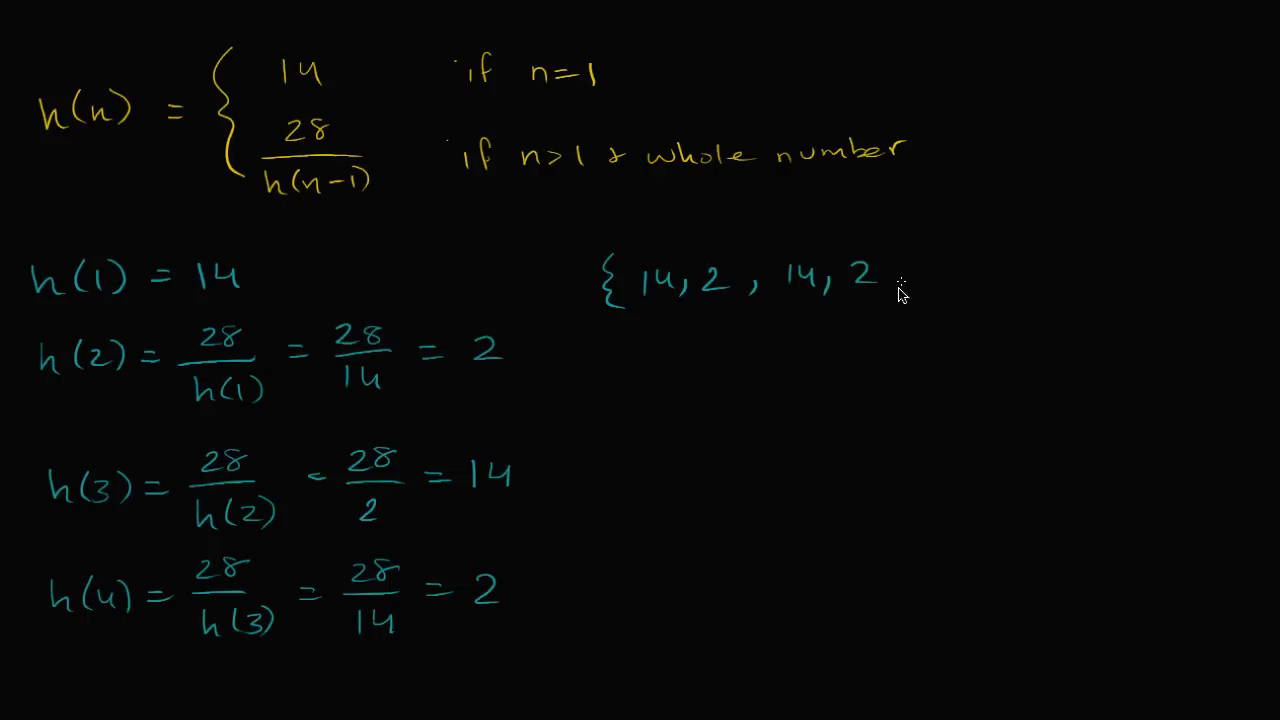 h(n) = { 14 if n=1
28/h(n-1) if n>1 & whole number
h(1) = 14
{ 14, 2, 14, 2
h(2) = 28/h(1) = 28/14 = 2
h(3) = 28/h(2) = 28/2 = 14
h(4) = 28/h(3) = 28/14 = 2